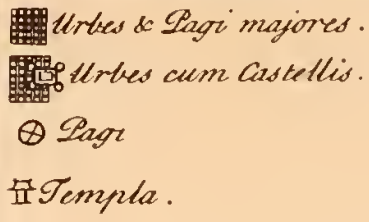 Urbes & Pagi majores.
Urbes cum Castellis.
Pagi
Templa.